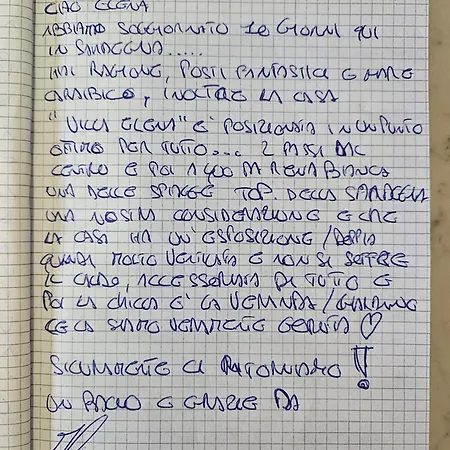 CIAO ELENA
ABBIAMO SOGGIORNATO 10 GIORNI QUI
IN SARDEGNA.....
HAI RAGIONE, POSTI FANTASTICI E MARE
CARAIBICO, INOLTRE LA CASA
"VILLA ELENA" E' POSIZIONATA IN UN PUNTO
OTTIMO PER TUTTO... 2 PASSI DAL
CENTRO E POI A 400 DA RENA BIANCA
UNA DELLE SPIAGGE TOP DELLA SARDEGNA
UNA NOSTRA CONSIDERAZIONE E CHE
LA CASA HA UN'ESPOSIZIONE/DOPPIA
QUINDI MOLTO VENTILATA E NON SI SOFFRE
IL CALDO, ACCESSORIATA DI TUTTO E
POI LA CHICCA E' LA VERANDA/GIARDINO
CE LA SIAMO VERAMENTE GODUTA ♡
SICURAMENTE CI RITORNIAMO!
UN BACIO E GRAZIE DA